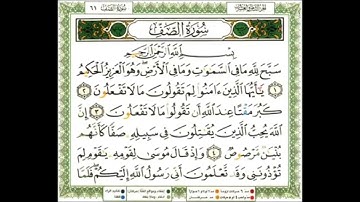 ٦١
سُورَةُ الصَّفِّ
بِسْمِ اللَّهِ الرَّحْمَٰنِ الرَّحِيمِ
سَبَّحَ لِلَّهِ مَا فِي السَّمَٰوَٰتِ وَمَا فِي الْأَرْضِ وَهُوَ الْعَزِيزُ الْحَكِيمُ
١ يَٰٓأَيُّهَا الَّذِينَ ءَامَنُوا لِمَ تَقُولُونَ مَا لَا تَفْعَلُونَ ٢
كَبُرَ مَقْتًا عِندَ اللَّهِ أَن تَقُولُوا مَا لَا تَفْعَلُونَ ٣ إِنَّ
اللَّهَ يُحِبُّ الَّذِينَ يُقَٰتِلُونَ فِي سَبِيلِهِ صَفًّا كَأَنَّهُم
بُنْيَٰنٌ مَّرْصُوصٌ ٤ وَإِذْ قَالَ مُوسَىٰ لِقَوْمِهِ يَٰقَوْمِ لِمَ
تُؤْذُونَنِي وَقَد تَّعْلَمُونَ أَنِّي رَسُولُ اللَّهِ إِلَيْكُمْ فَلَمَّا